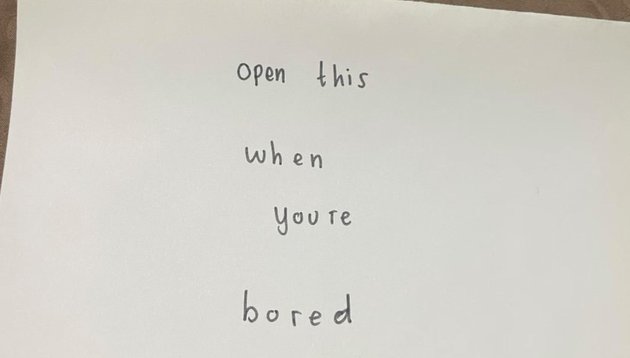 open this
when
youre
bored